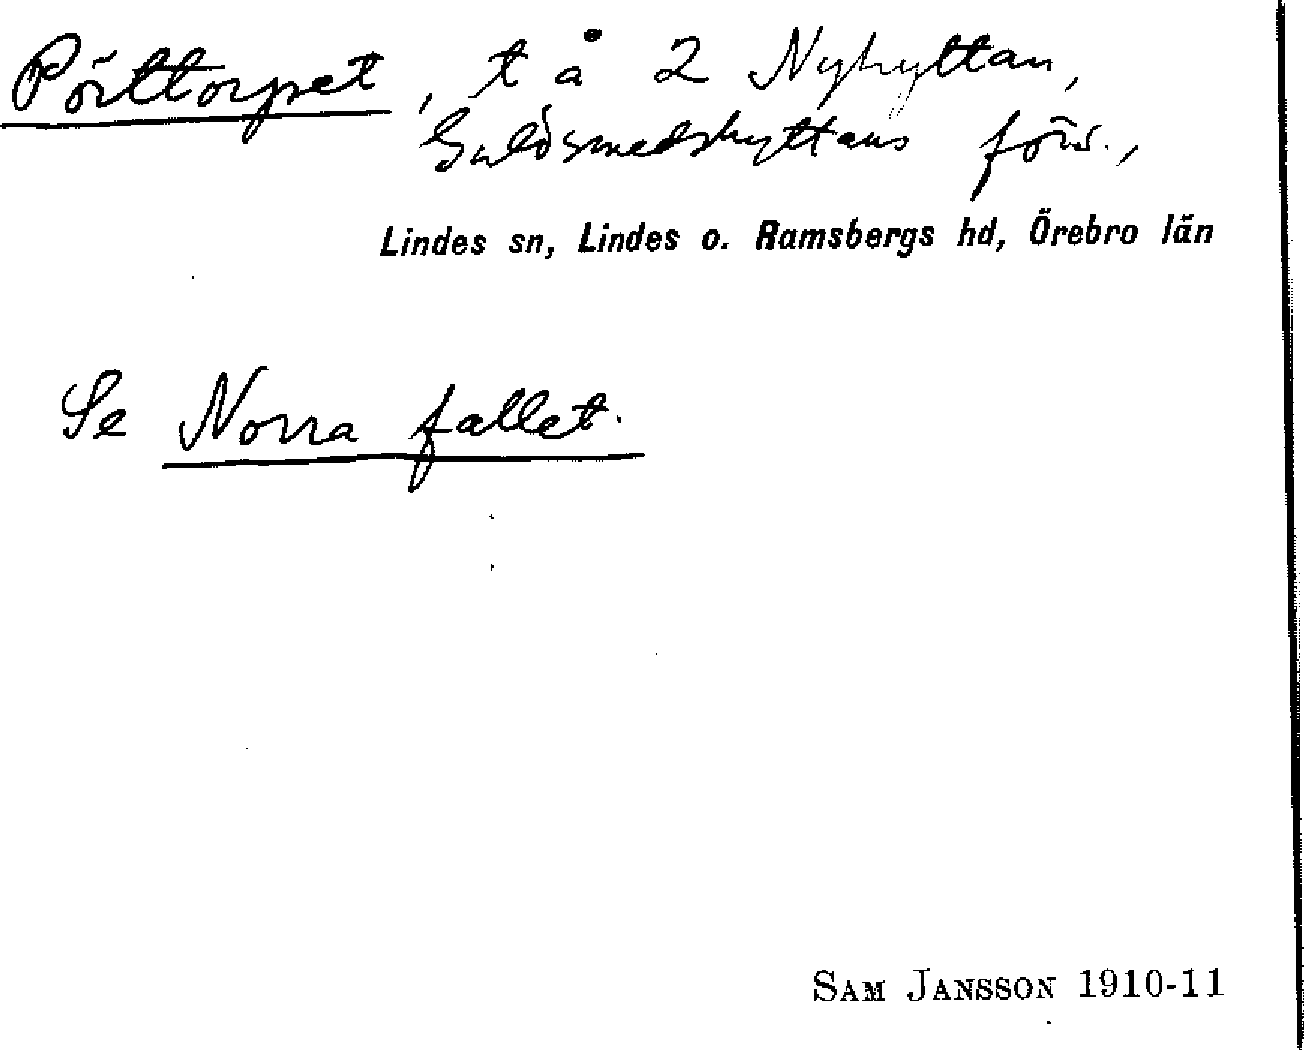 Pörttorpet, t å 2 Nyhyttan,
Guldsmedshyttans förs.,
Lindes sn, Lindes o. Ramsbergs hd, Örebro län
Se Norra fallet.
SAM JANSSON 1910-11